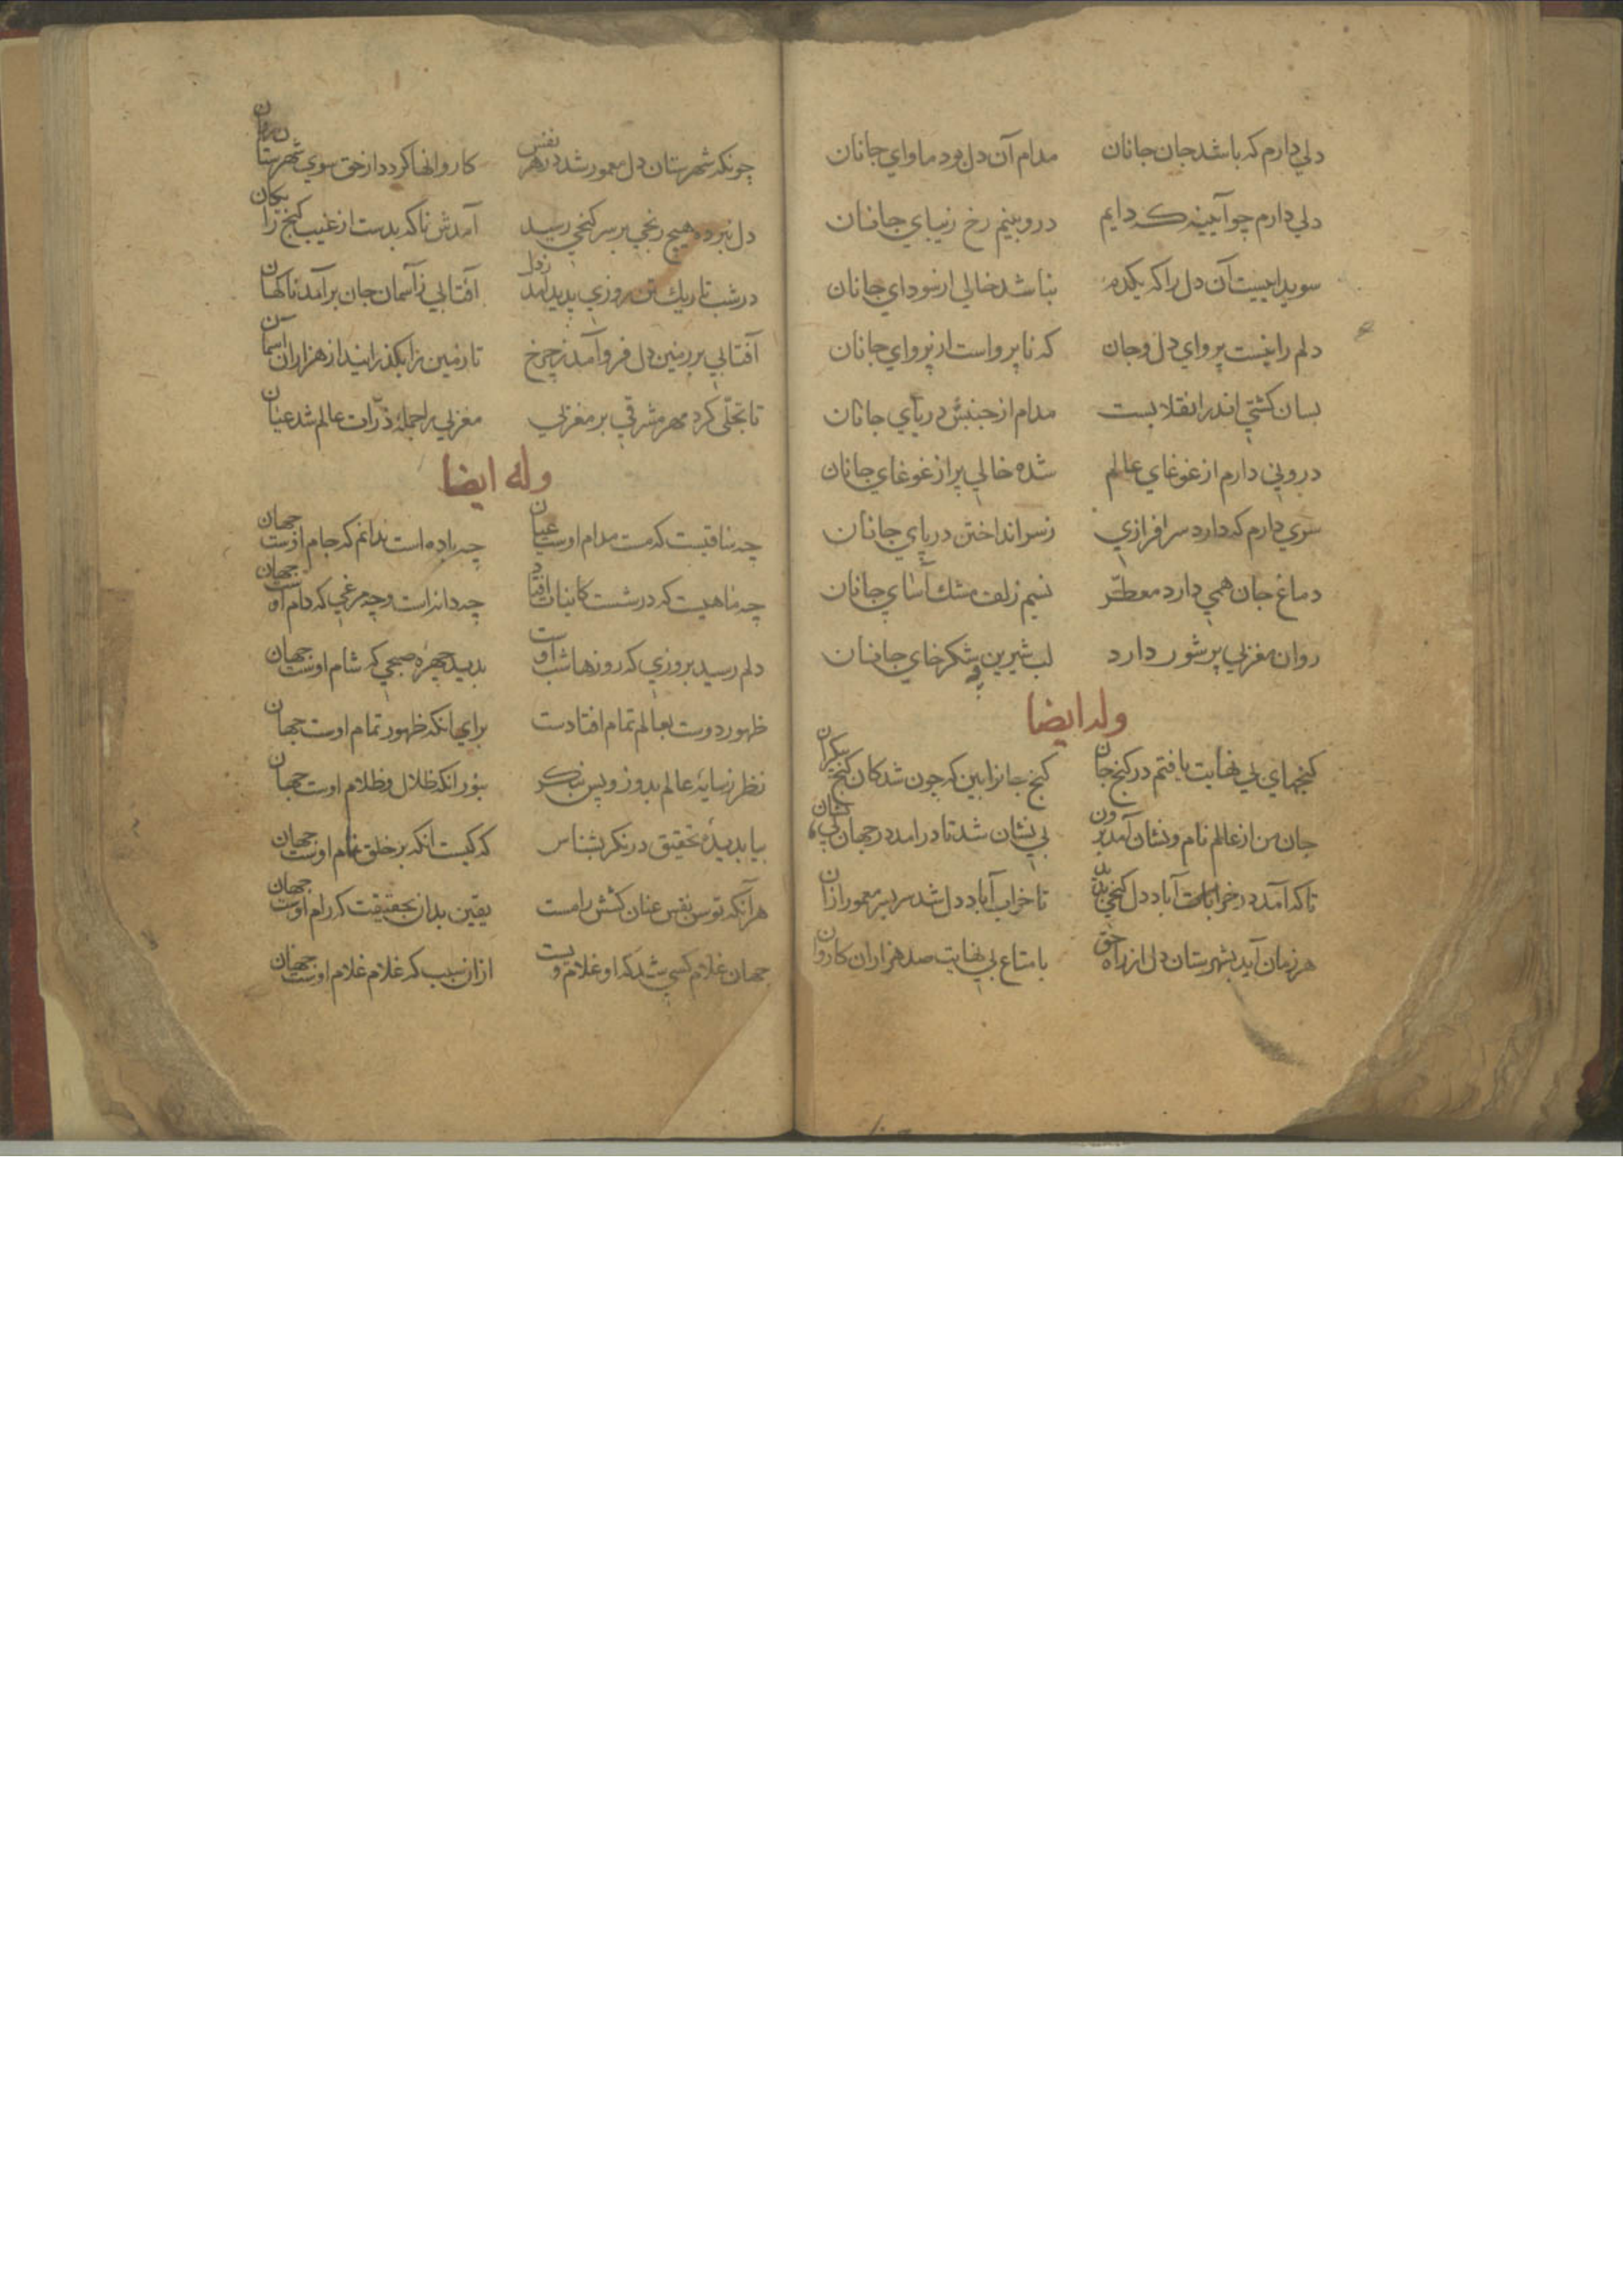 دلي دارم که باشد جان جانان مدام آن دل بود ماواي جانان
دلي دارم چو آيينه که دايم درو بينم رخ زيباي جانان
سويدا نيست آن دل را که يکدم نباشد خالي از سوداي جانان
دلم را نيست پرواي دل و جان که ناپرواست از پرواي جانان
بسان کشتي اندر انقلابست مدام از جنبش درياي جانان
دروني دارم از غوغاي عالم شده خالي پر از غوغاي جانان
سري دارم که دارد سرافرازي ز سر انداختن در پاي جانان
دماغ جان همي دارد معطّر نسيم زلف مشك آساي جانان
روان مغربي پر شور دارد لب شيرين شکرخاي جانان
وله ايضا
کنجهاي بي نهايت يافتم در کنج جان کنج جانرا بين که چون شد کان کنج بيکران
جان من از عالم نام و نشان آمد برون بي نشان شد تا درامد در جهان بي نشان
تا که آمد در خرابات آباد دل کنجي بديد تا خراب آباد دل شد سربسر معمور ازان
هر زمان آيد بشهرستان دل از راه حق با متاع بي نهايت صد هزاران کاروان
چونکه شهرستان دل معمور شد در هر نفس کاروانها کردد از حق سوي شهرستان روان
دل نبرده هيچ رنجي بر سر کنجي رسيد آمدش ناکه بدست از غيب کنج رايکان
در شب تاريك تن روزي پديد آمد ز دل آفتابي ز آسمان جان برآمد ناکهان
آفتابي بر زمين دل فرو آمد ز چرخ تا زمين را بکذرانيد از هزاران آسمان
تا تجلّي کرد مهر مشرقي بر مغربي مغربي را جملهٔ ذرّات عالم شد عيان
وله ايضا
چه ساقيست که مست مدام اوست عيان چه باده است ندانم که جام اوست جهان
چه ماهيست که در شست کاينات افتاد چه دانه است و چه مرغي که دام اوست جهان
دلم رسيد بروزي که روزها شب اوست بديد چهرهٔ صبحي که شام اوست جهان
ظهور دوست بعالم تمام افتادست براي انکه ظهور تمام اوست جهان
نظر ز سايهٔ عالم بدوز و پس بنکر بنور انکه ظلال و ظلام اوست جهان
بيا بديدهٔ تحقيق درنکر بشناس که کيست انکه بر خلق نام اوست جهان
هر آنکه توسن نفس عنان کشش رامست يقين بدان بحقيقت که رام اوست جهان
جهان غلام کسي شد که او غلام ويست ازان سبب که غلام غلام اوست جهان